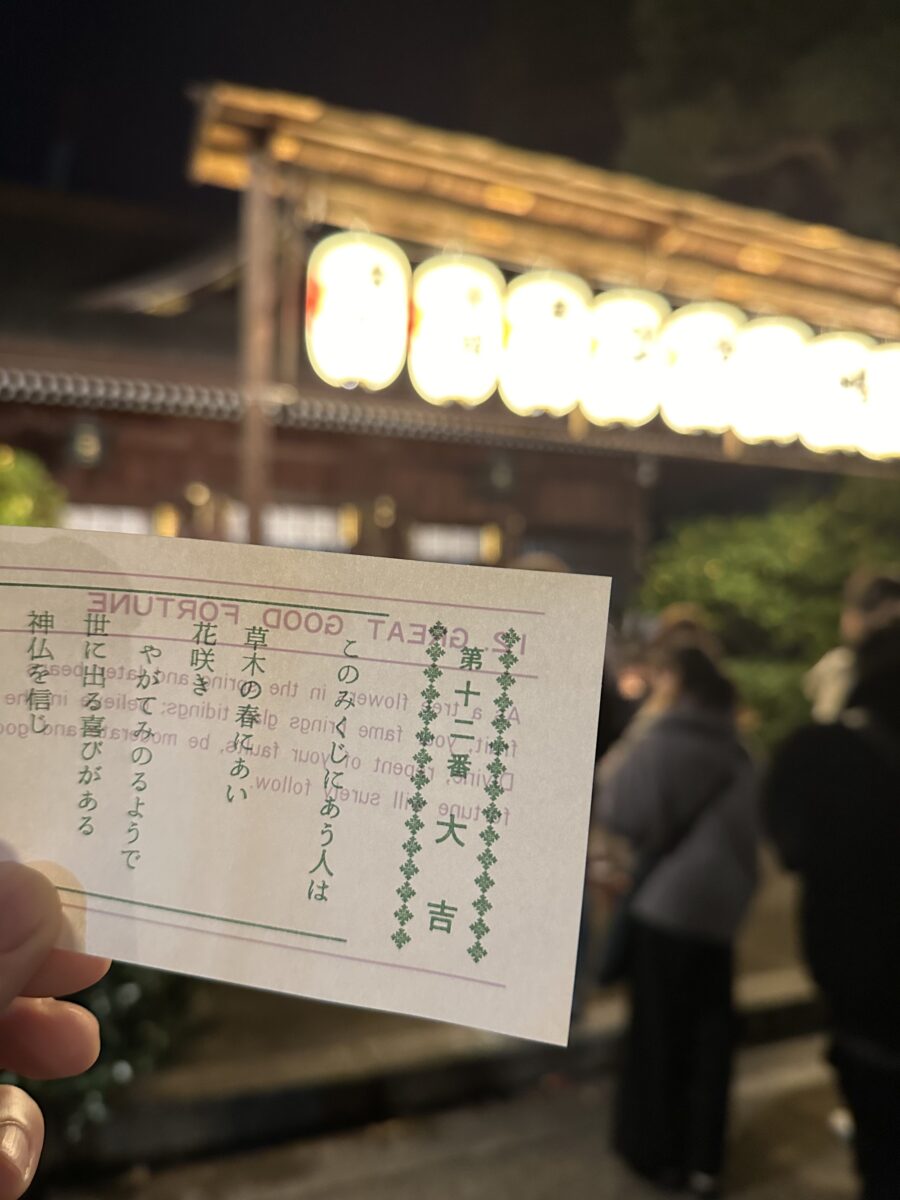 第十二番 大吉
このみくじにあう人は
草木の春にあい
花咲き
やがてみのるようで
世に出る喜びがある
神仏を信じ
12. GREAT GOOD FORTUNE
As a tree flowers in the spring and later bears
fruit, your fame brings glad tidings; believe in the
Divine, repent of your faults, be moderate and good
fortune will surely follow.